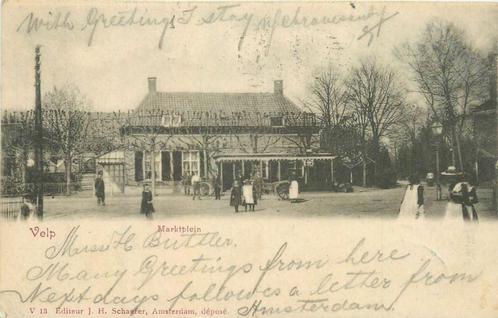 With Greeting I stay
Velp
Marktplein
Miss H Buttler.
Many Greetings from here
Next days followes a letter from
Amsterdam
V 13 Éditeur J. H. Schaefer, Amsterdam, déposé.